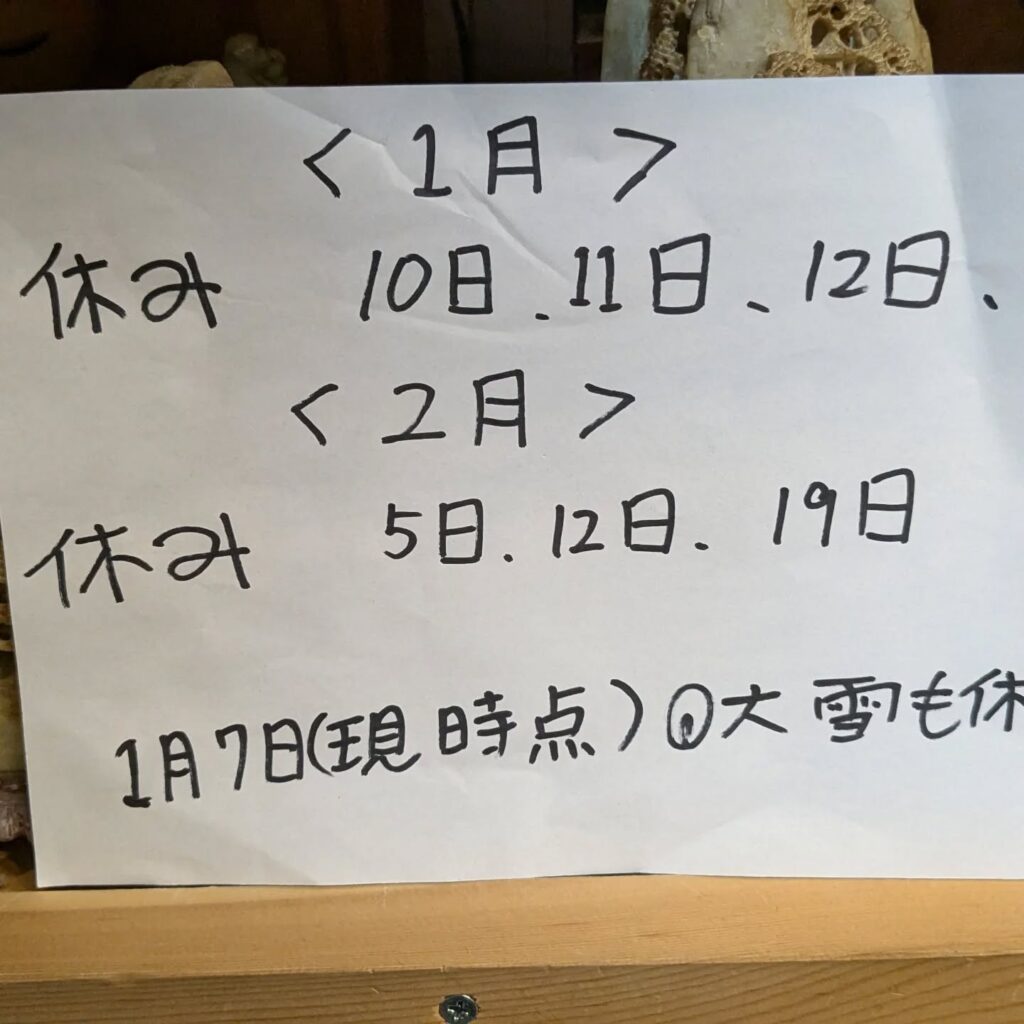 <1月>
休み 10日、11日、12日、
<2月>
休み 5日、12日、19日
1月7日(現時点)大雪も休